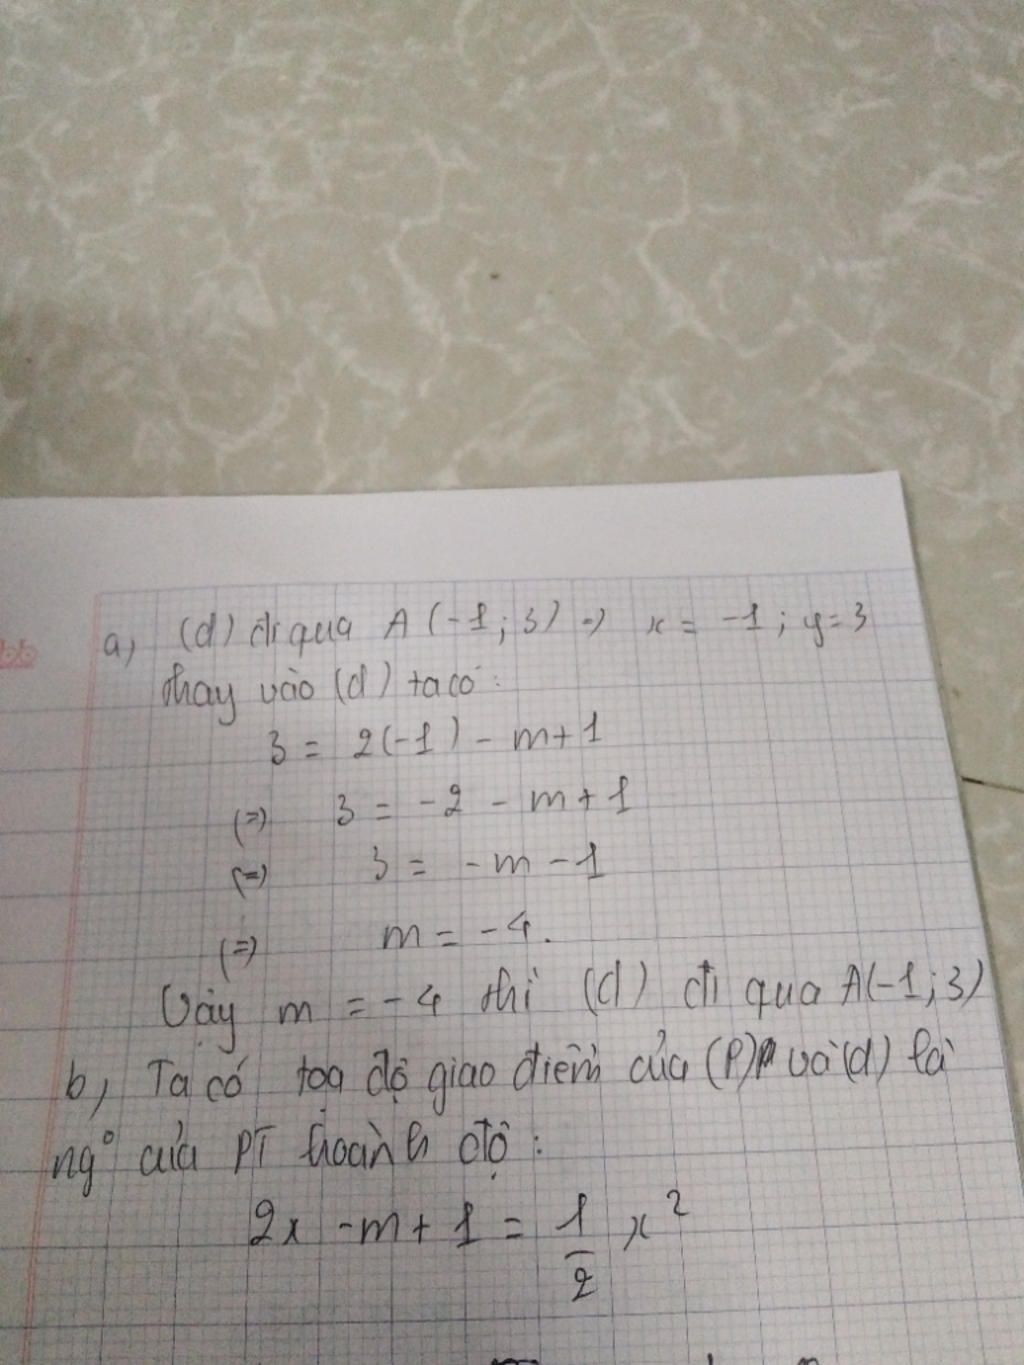 a, (d) đi qua A (-1; 3) => x = -1; y = 3
thay vào (d) ta có:
3 = 2(-1) - m + 1
(=) 3 = -2 - m + 1
(=) 3 = -m - 1
(=) m = -4.
Vậy m = -4 thì (d) đi qua A(-1; 3)
b, Ta có toạ độ giao điểm của (P) và (d) là
ng° của PT hoành độ:
2x - m + 1 = 1/2 x²